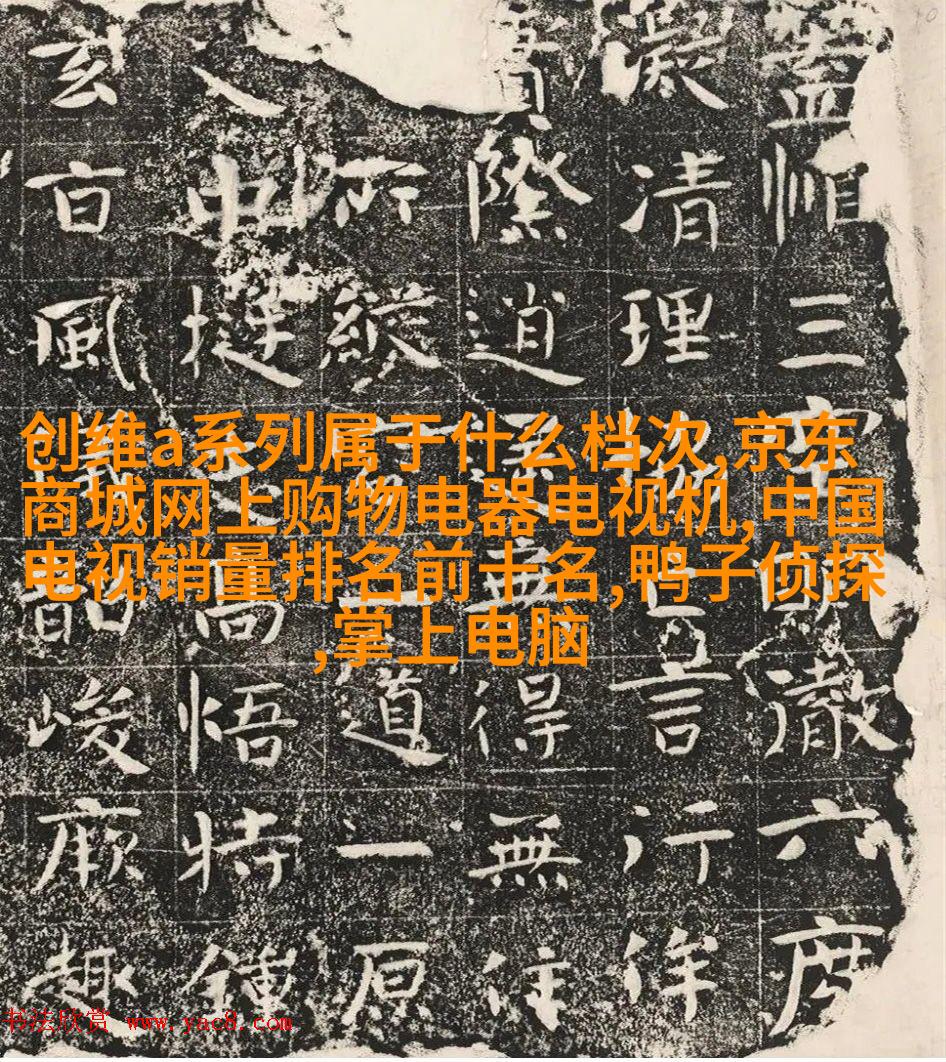 三
澈
六
度
凝
清
理
言
行
際
道
無
得
無
住
所
縱
道
一
原
中
挺
高
悟
特
鍾
玄
風
韶
峻
厥
趣
创维a系列属于什么档次,京东
商城网上购物电器电视机,中国
电视销量排名前十名,鸭子侦探
,掌上电脑
书法欣赏 www.yac8.com